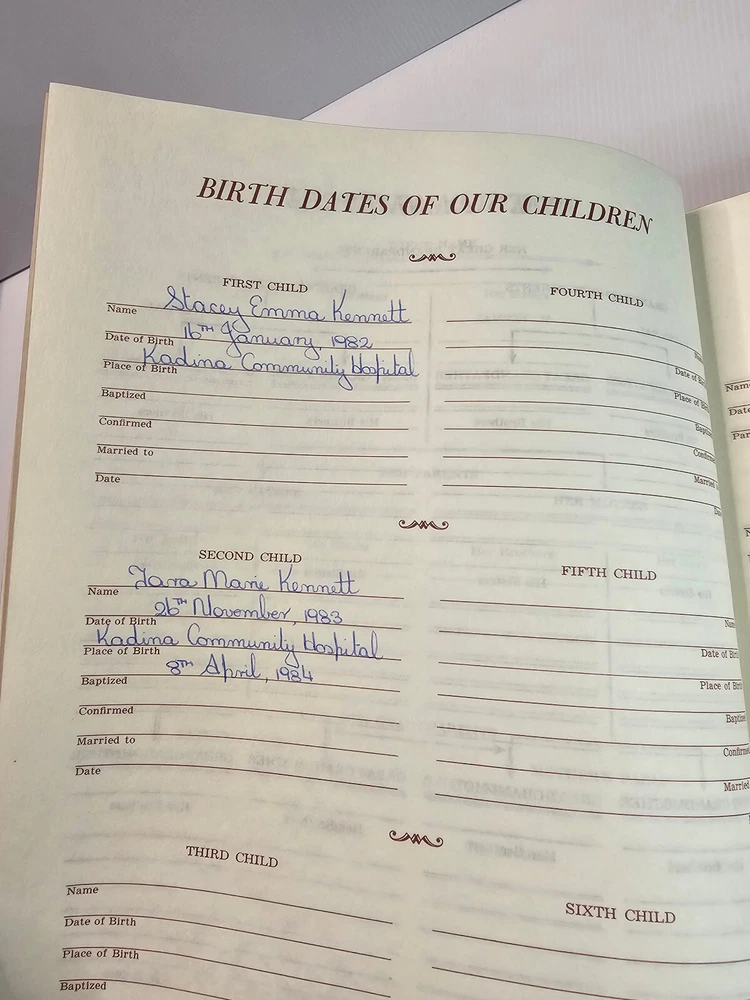 BIRTH DATES OF OUR CHILDREN
FIRST CHILD
Name Stacey Emma Kennett
Date of Birth 16TH January, 1982
Place of Birth Kadina Community Hospital
Baptized
Confirmed
Married to
Date
SECOND CHILD
Name Tara Marie Kennett
Date of Birth 26TH November, 1983
Place of Birth Kadina Community Hospital
Baptized 8TH April, 1984
Confirmed
Married to
Date
THIRD CHILD
Name
Date of Birth
Place of Birth
Baptized
FOURTH CHILD
Date of
Place of
Married
FIFTH CHILD
Date of
Place of
Married
SIXTH CHILD